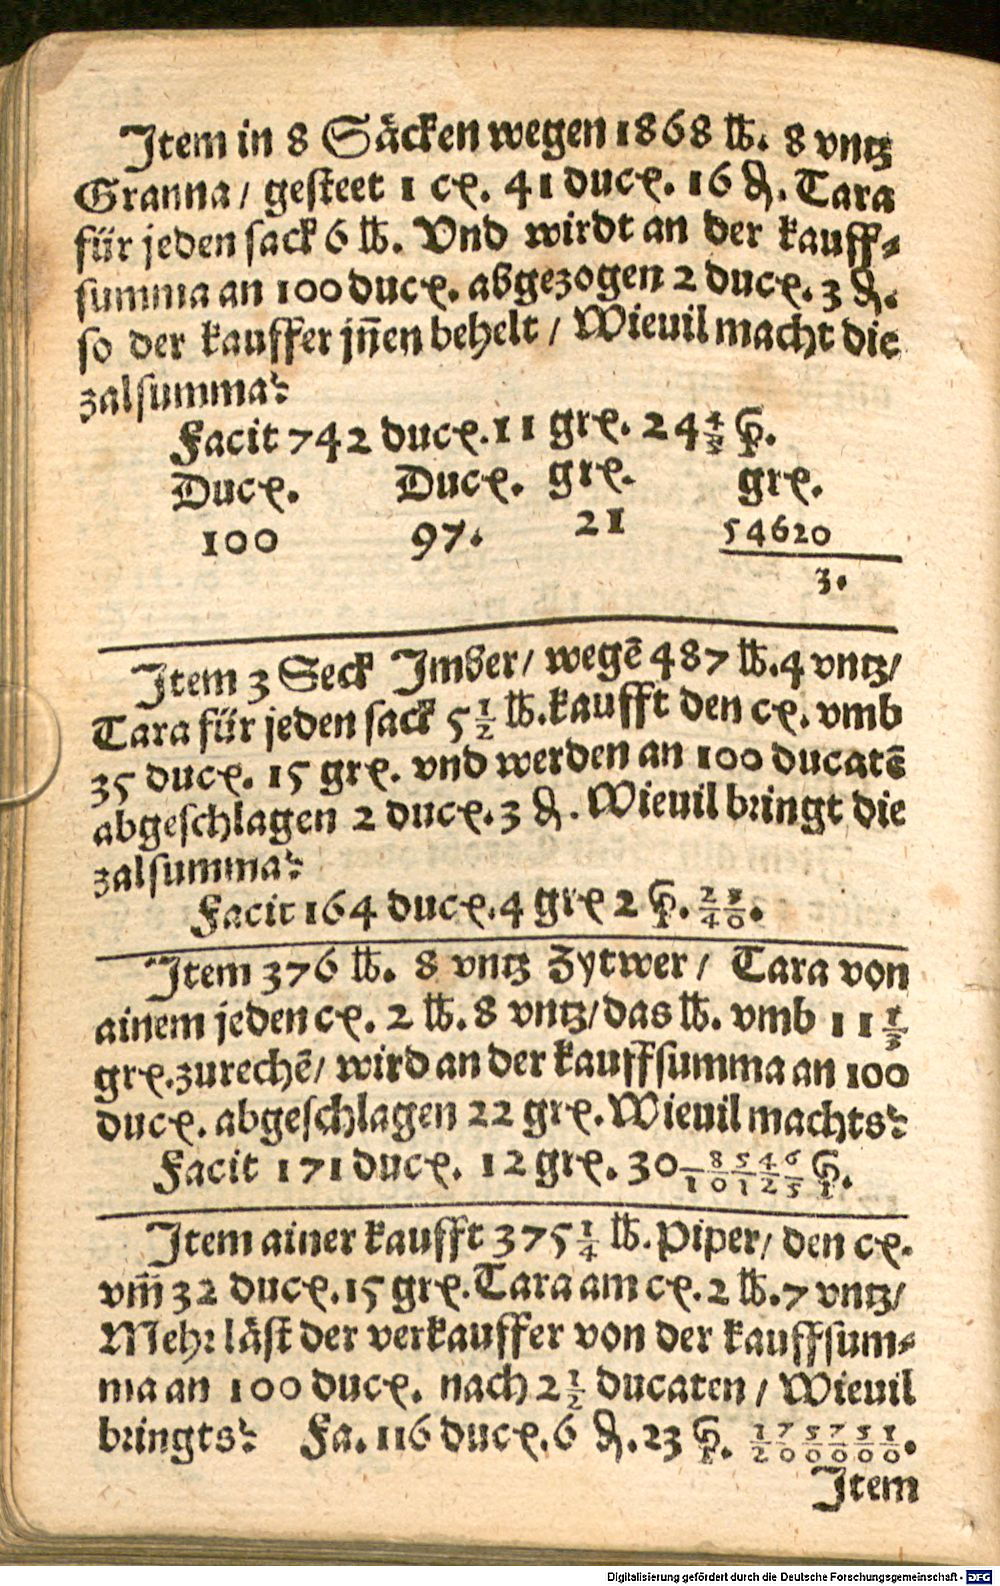 Item in 8 Säcken wegen 1868 lb. 8 vntz
Granna / gesteet 1 cꝫ. 41 ducꝫ. 16 ₰. Tara
für jeden sack 6 lb. Vnd wirdt an der kauff⸗
summa an 100 ducꝫ. abgezogen 2 ducꝫ. 3 ₰.
so der kauffer jñen behelt / Wieuil macht die
zalsumma?
Facit 742 ducꝫ. 11 grꝫ. 24 4/5 ꝑ.
Ducꝫ. Ducꝫ. grꝫ. grꝫ.
100 97. 21 54620
3.
Item 3 Seck Imber / wegē 487 lb. 4 vntz /
Tara für jeden sack 5 1/2 lb. kaufft den cꝫ. vmb
35 ducꝫ. 15 grꝫ. vnd werden an 100 ducatē
abgeschlagen 2 ducꝫ. 3 ₰. Wieuil bringt die
zalsumma?
Facit 164 ducꝫ. 4 grꝫ 2 ꝑ. 23/40.
Item 376 lb. 8 vntz Zytwer / Tara von
ainem jeden cꝫ. 2 lb. 8 vntz / das lb. vmb 11 1/3
grꝫ. zurechē / wird an der kauffsumma an 100
ducꝫ. abgeschlagen 22 grꝫ. Wieuil machts?
Facit 171 ducꝫ. 12 grꝫ. 30 8546/10125 ꝑ.
Item ainer kaufft 375 1/4 lb. Piper / den cꝫ.
vm̃ 32 ducꝫ. 15 grꝫ. Tara am cꝫ. 2 lb. 7 vntz /
Mehr läst der verkauffer von der kauffsum⸗
ma an 100 ducꝫ. nach 2 1/2 ducaten / Wieuil
bringts? Fa. 116 ducꝫ. 6 ₰. 23 ꝑ. 175751/200000.
Item
Digitalisierung gefördert durch die Deutsche Forschungsgemeinschaft - DFG